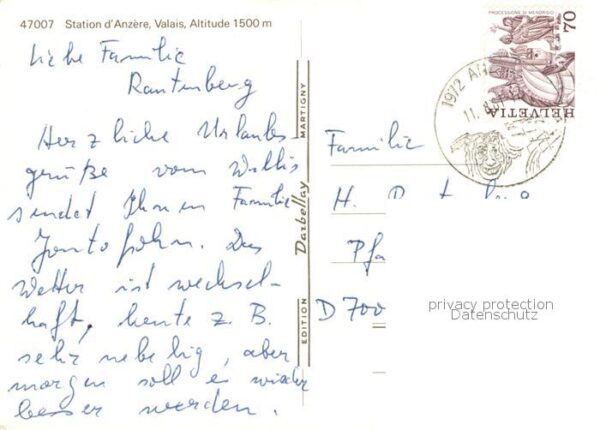 47007 Station d'Anzère, Valais, Altitude 1500 m
Liebe Familie
Rautenberg
Herzliche Urlaubs
grüße vom Wallis
sendet Ihnen Familie
Das
Wetter ist wechsel-
haft, heute z. B.
sehr nebelig, aber
morgen soll es wieder
besser werden.
EDITION Darbellay MARTIGNY
PROCESSIONE DI MENDRISIO
70
HELVETIA
1972 AN
11.
Familie
H.
Pfa
D 700
privacy protection
Datenschutz